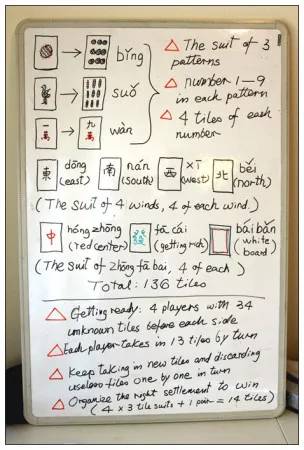 → bǐng
→ suǒ
一萬 → 九萬 wàn
△ The suit of 3 patterns
△ number 1–9 in each pattern
△ 4 tiles of each number
東 dōng (east) 南 nán (south) 西 xī (west) 北 běi (north)
(The suit of 4 winds, 4 of each wind.)
中 hóng zhōng (red center) 發 fā cái (getting rich) bái bǎn (white board)
(The suit of zhōng fā bai, 4 of each)
Total: 136 tiles
△ Getting ready: 4 players with 34
unknown tiles before each side
△ Each player takes in 13 tiles by turn
△ Keep taking in new tiles and discarding
useless tiles one by one in turn
△ Organize the right settlement to win
(4 x 3 tile suits + 1 pair = 14 tiles)